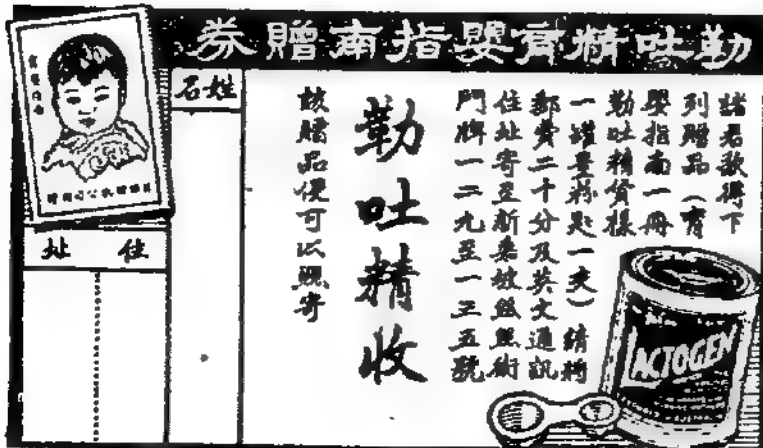 勒吐精育嬰指南贈券
諸君欲得下
列贈品（育
嬰指南一冊
勒吐精貨樣
一罐量粉匙一支）請將
郵費二十分及英文通訊
住址寄至新嘉坡絲絲街
門牌一二九至一三五號
勒吐精收
該贈品便可以照寄
姓名
住址
育嬰指南
ACTOGEN